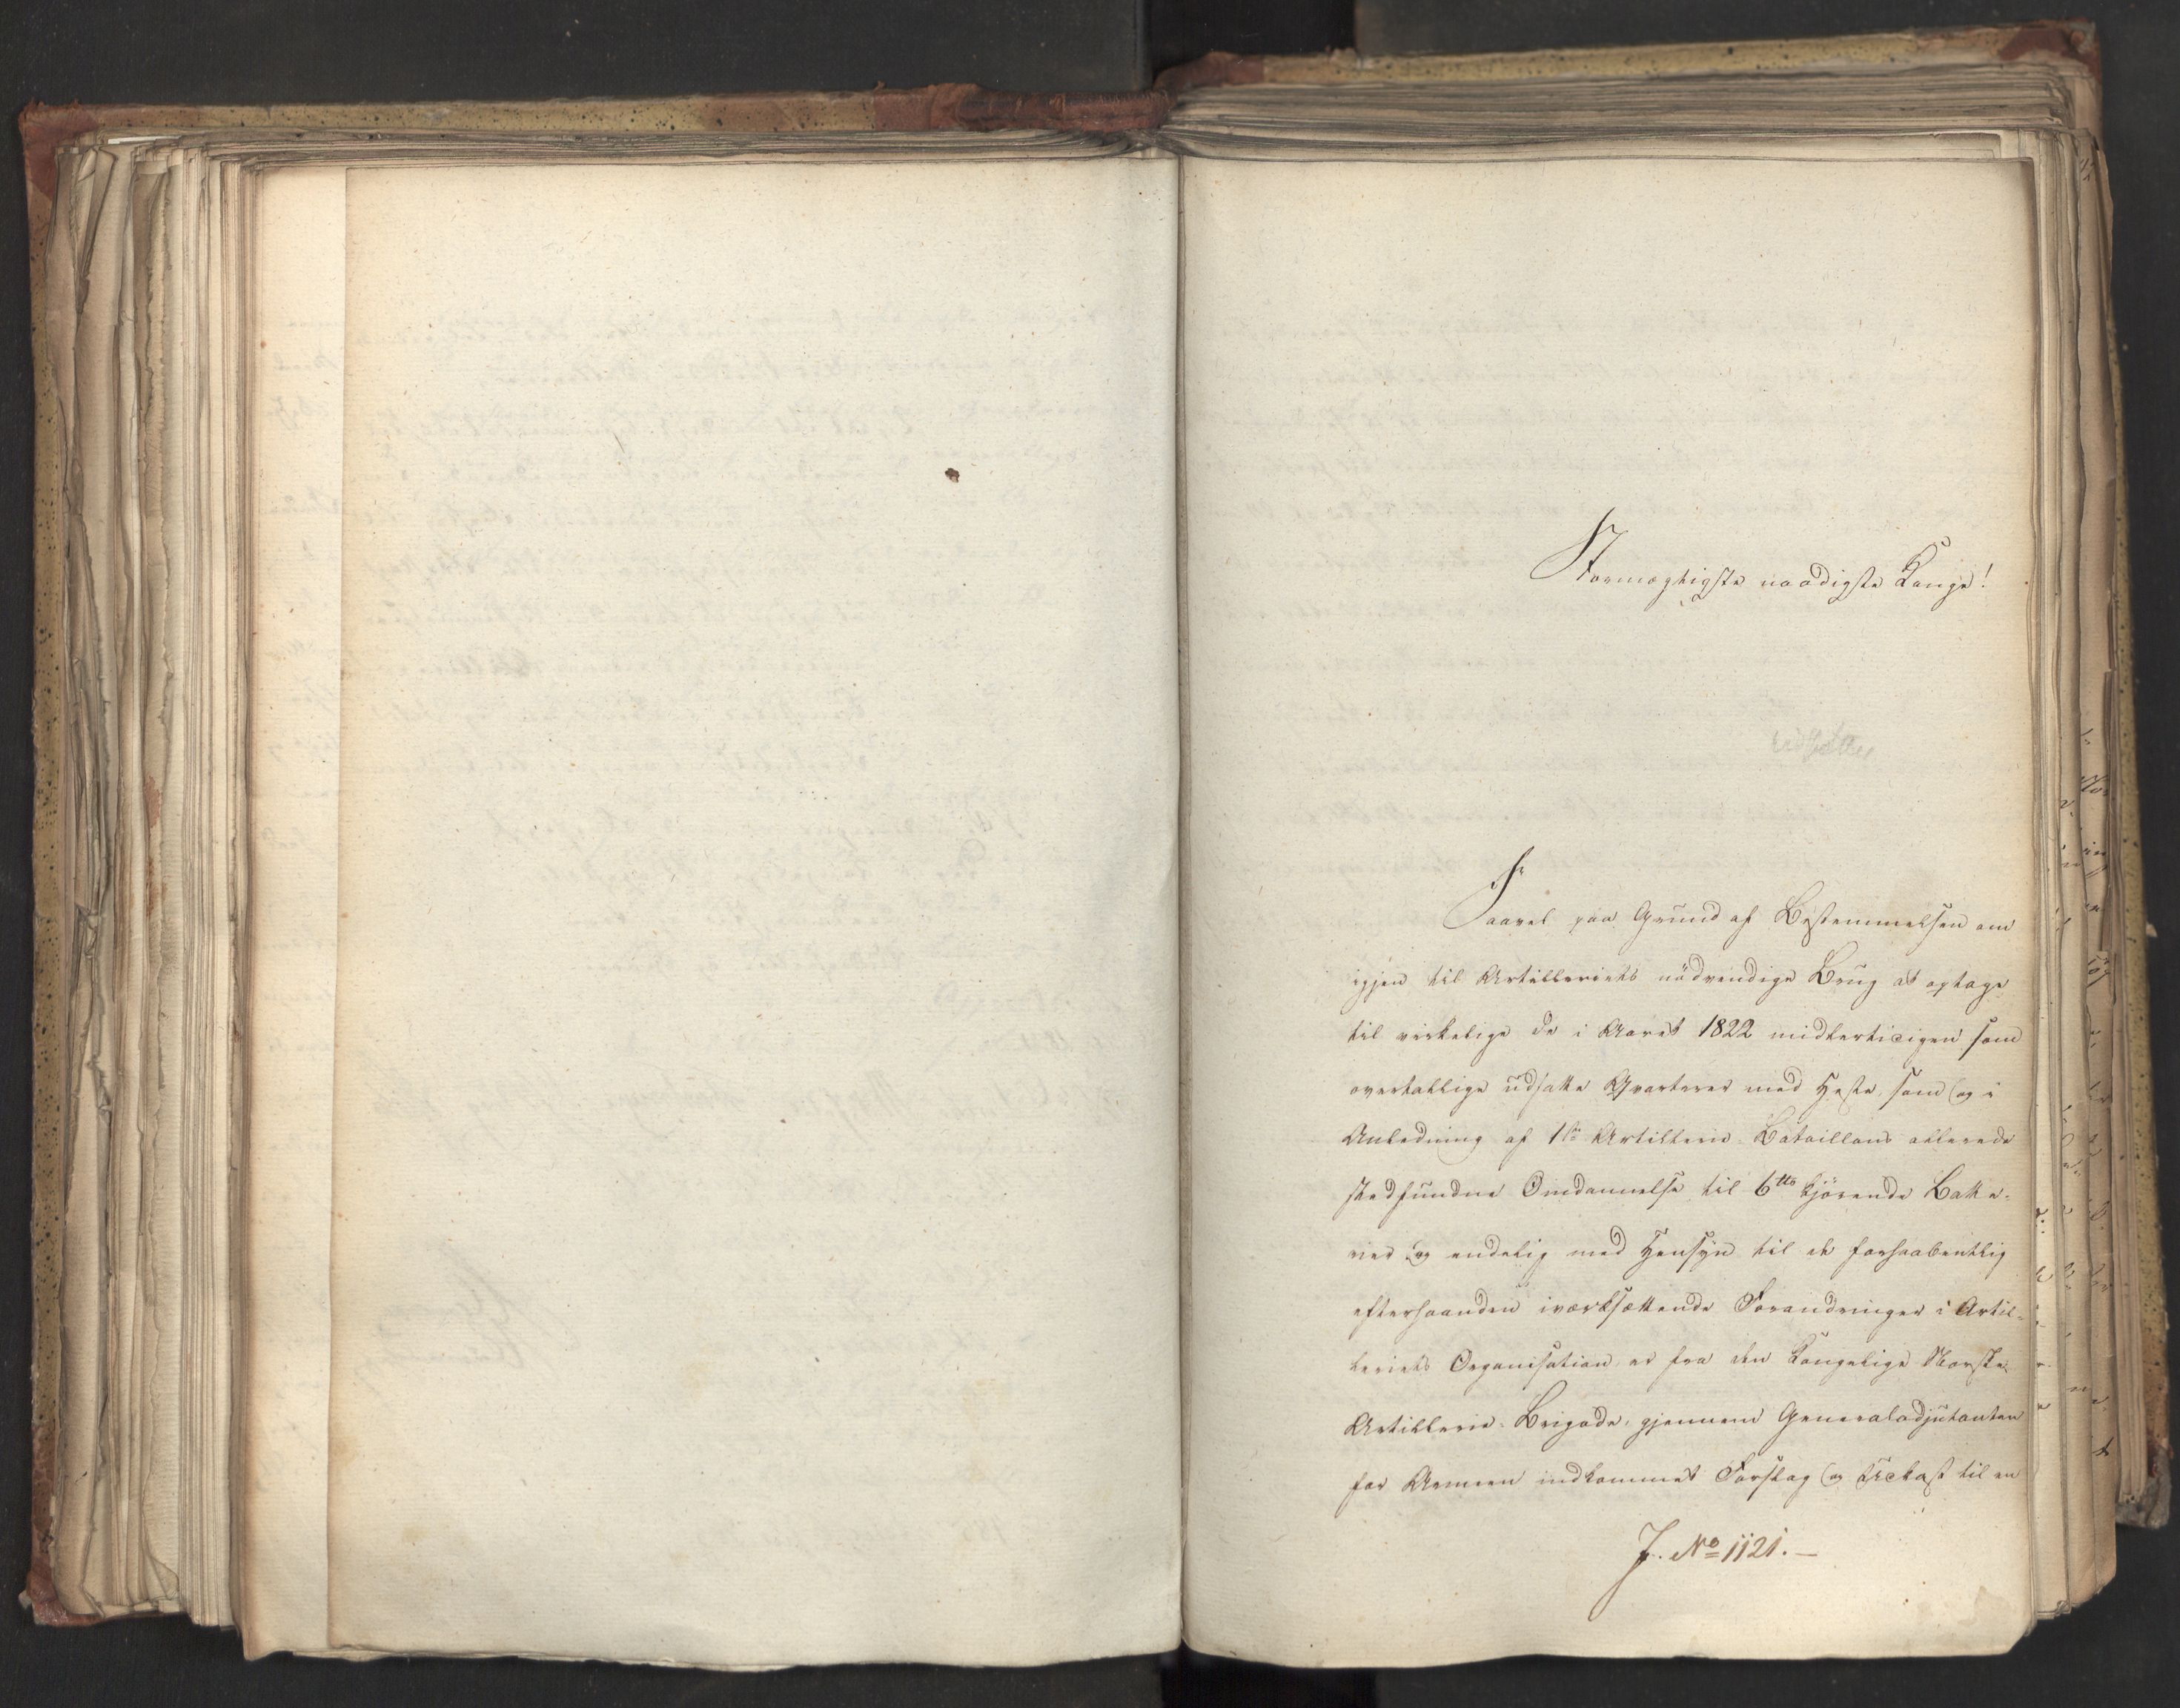 Stormægtigste naadigste Konge!
Saavel paa Grund af Bestemmelsen om
igjen til Artilleriets nödvendige Brug at optage
til virkelige de i Aaret 1822 midlertidigen som
overtallige udsatte Qvarterer med Heste, som og i
Anledning af 1ste Artillerie-Bataillons allerede
stedfundne Omdannelse til 6tte kjörende Batte-
rier og endelig med Hensyn til de forhaabentlig
efterhaanden iværksættende Forandringer i Artil-
leriets Organisation, er fra den Kongelige Norske
Artillerie-Brigade, gjennem Generaladjutanten
for Armeen indkommet Forslag og Udkast til en
J. No 1121.—